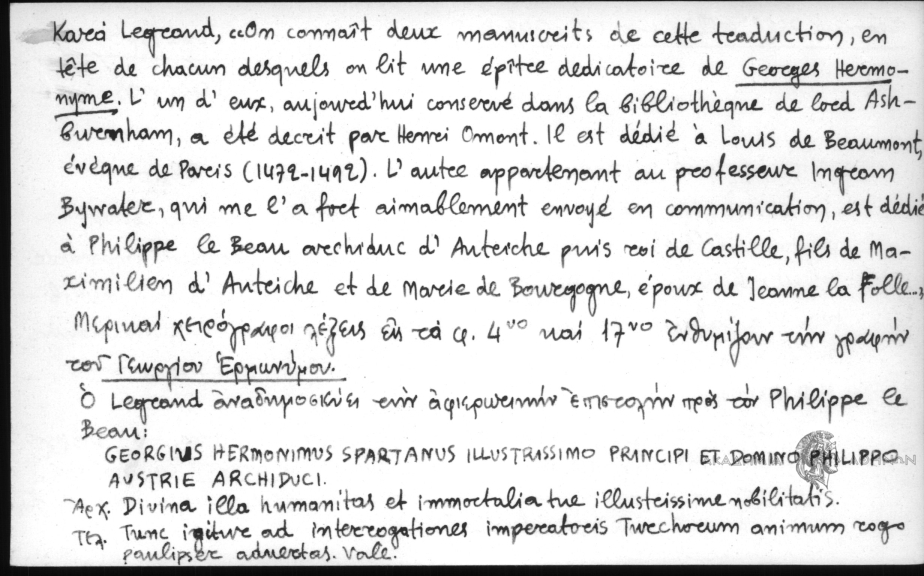 Κατά Legrand, «On connaît deux manuscrits de cette traduction, en
tête de chacun desquels on lit une épître dedicatoire de Georges Hermo-
nyme. L' un d' eux, aujourd'hui conservé dans la bibliothèque de lord Ash-
burnham, a été decrit par Henri Omont. Il est dédié à Louis de Beaumont,
évêque de Paris (1472-1492). L' autre appartenant au professeur Ingram
Bywater, qui me l' a fort aimablement envoyé en communication, est dédié
à Philippe le Beau archiduc d' Autriche puis roi de Castille, fils de Ma-
ximilien d' Autriche et de Marie de Bourgogne, époux de Jeanne la Folle..,
Μερικαί χειρόγραφοι λέξεις εἰς τά φ. 4νο καί 17νο ἐνθυμίζουν τήν γραφήν
τοῦ Γεωργίου Ἑρμωνύμου.
Ὁ Legrand ἀναδημοσιεύει τήν ἀφιερωτικήν ἐπιστολήν πρός τόν Philippe le
Beau:
GEORGIUS HERMONIMUS SPARTANUS ILLUSTRISSIMO PRINCIPI ET DOMINO PHILIPPO
AUSTRIE ARCHIDUCI.
Ἀρχ. Divina illa humanitas et immortalia tue illustrissime nobilitatis.
Τελ. Tunc igitur ad interrogationes imperatoris Turchorum animum rogo
paulisper advertas. Vale.